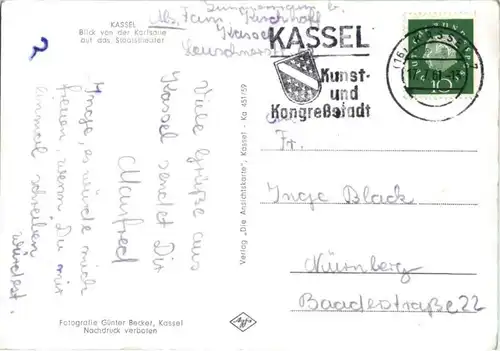 KASSEL
Blick von der Karlsaue
auf das Staatstheater
Abs. Fam. Kirchhoff
Kassel
Viele Grüße aus
Kassel sendet Dir
Manfred
Inge, es würde mich
freuen, wenn Du mir
einmal schreiben
würdest.
Fotografie Günter Becker, Kassel
Nachdruck verboten
Verlag „Die Ansichtskarte", Kassel - Ka 451/59
KASSEL
Kunst-
und
Kongreßstadt
(16) KASSEL 7
10
Fr.
Inge Black
Nürnberg
Baaderstraße 22
Agfa